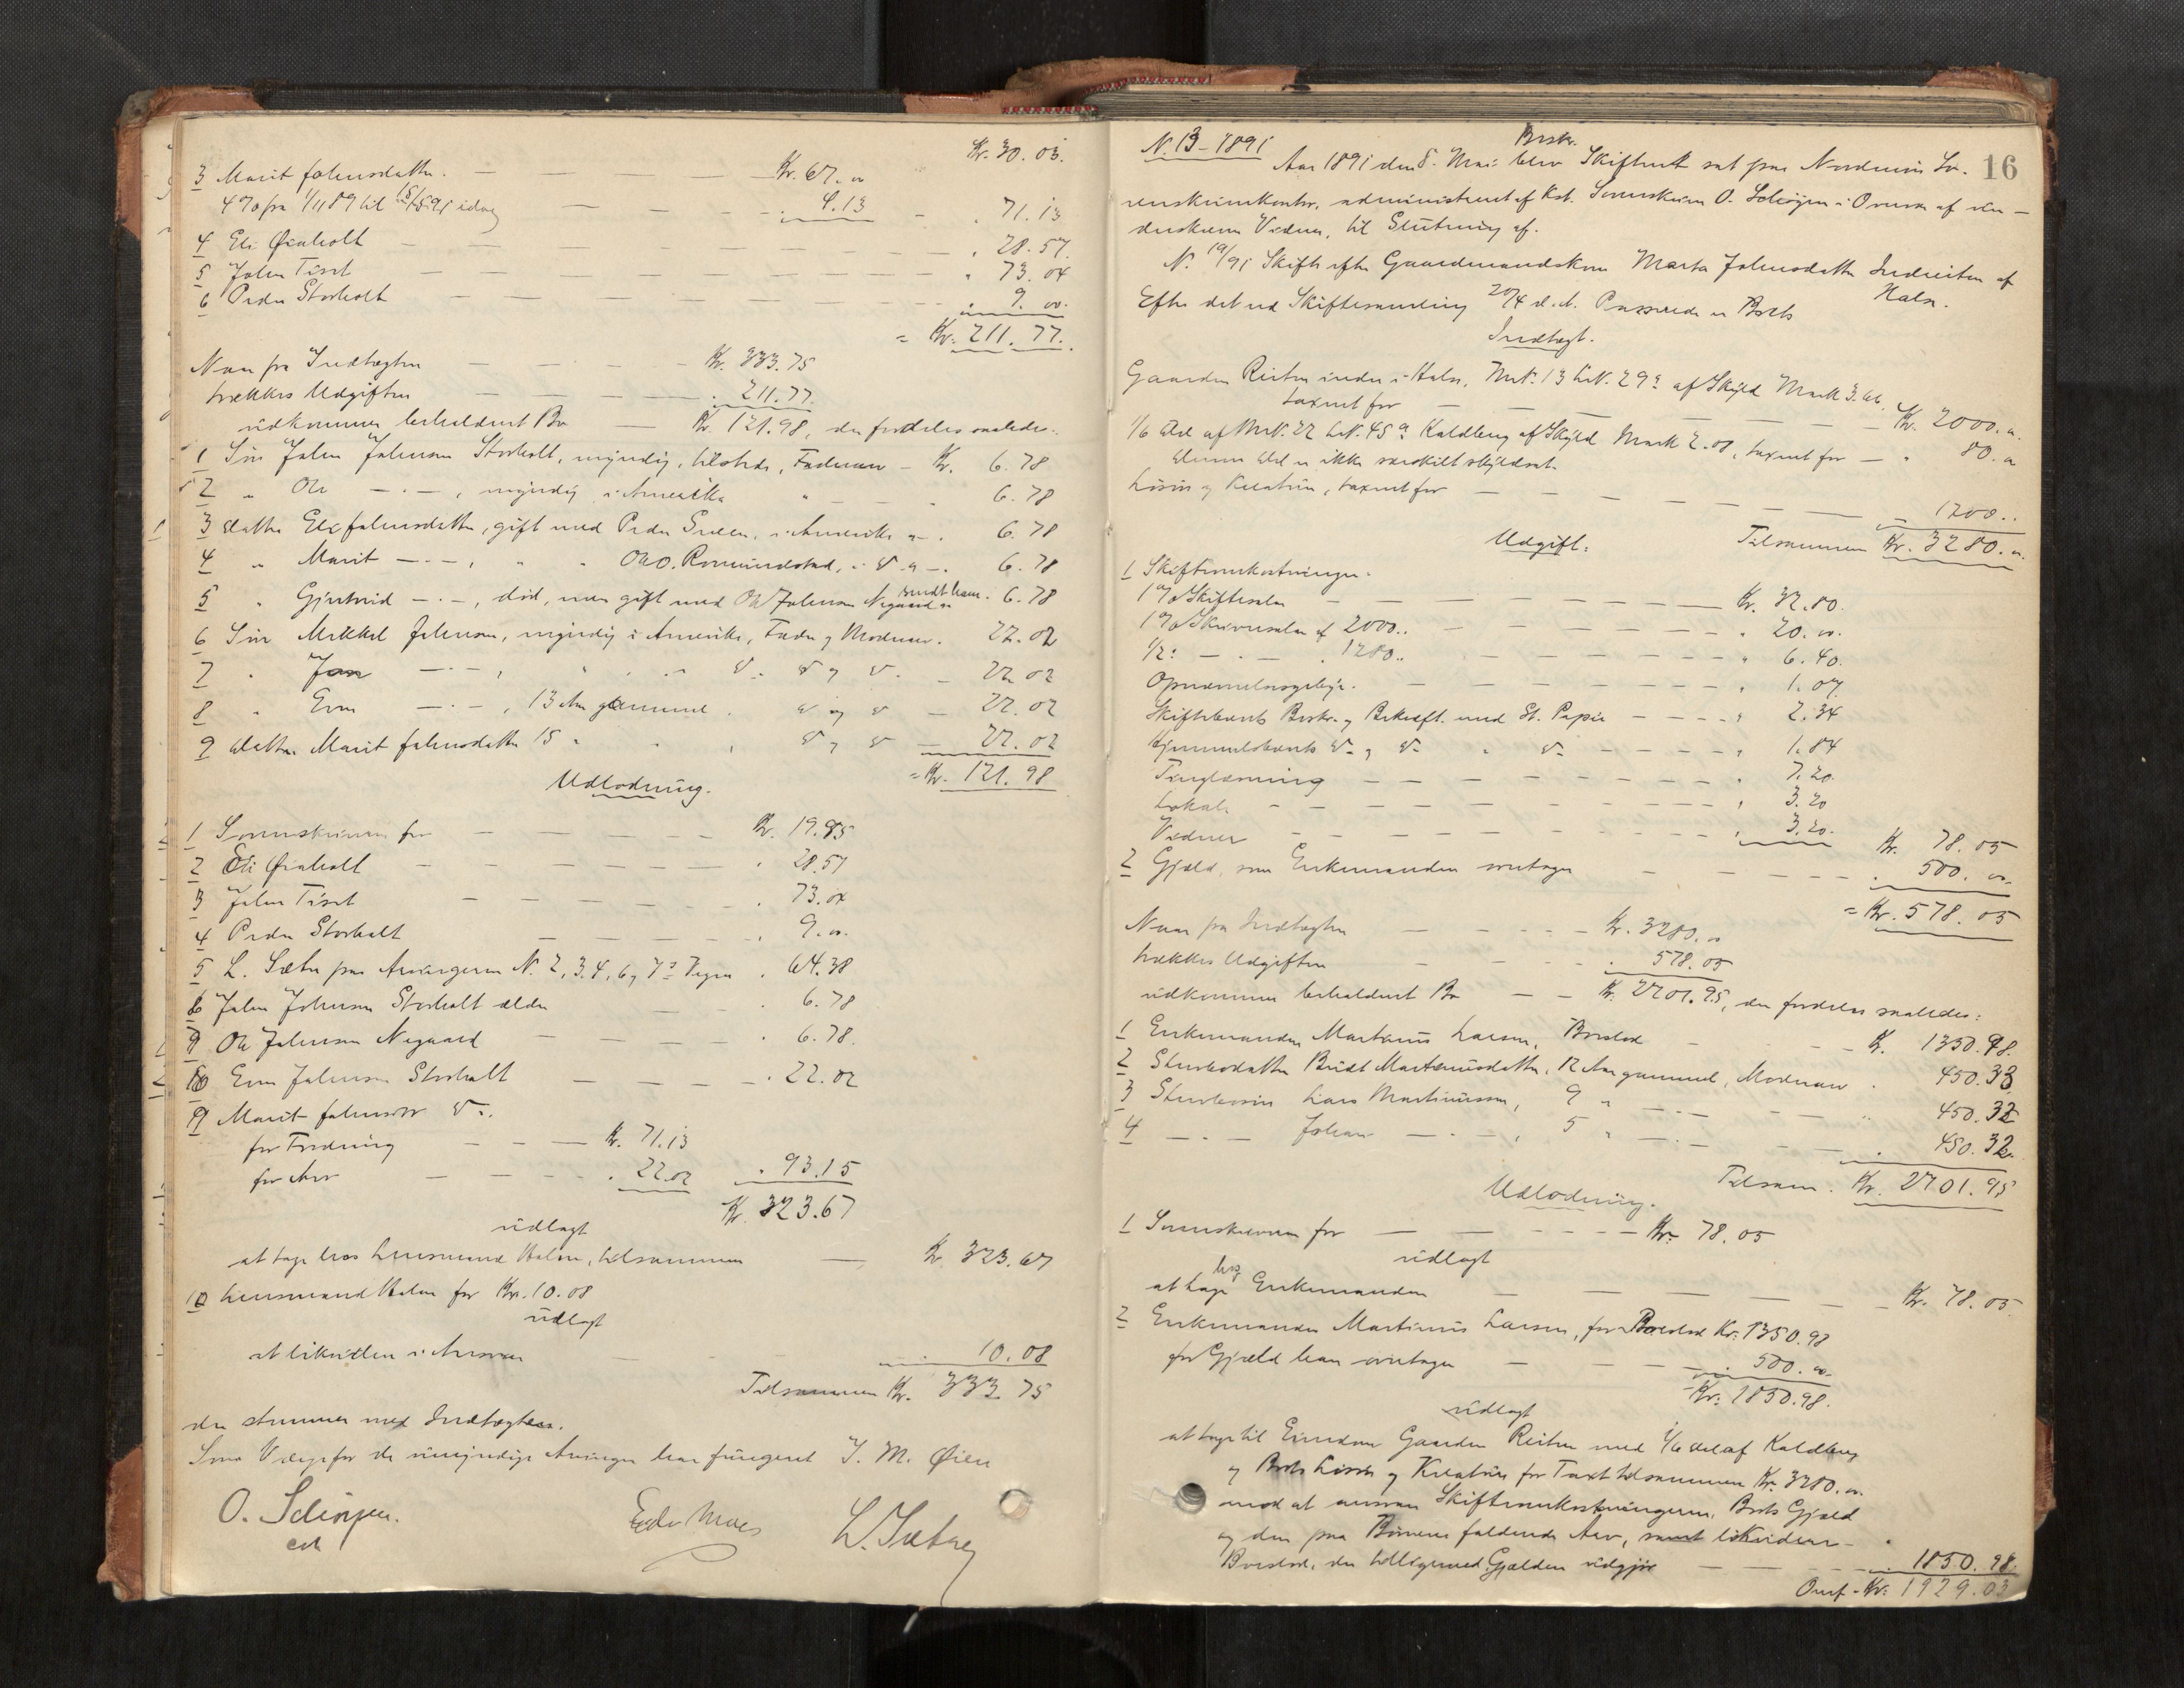 Kr. 30.03.
3 Marit Johnsdatter. — — — Kr. 67. "
4 % fra 1/11 89 til 15/5 91 idag — — 4.13 - " 71.13
4 Eli Øiaholt — — — " 28.57.
5 John Tiset — — — " 73.04
6 Peder Storholt — — — " 9. oo.
= Kr. 211.77.
Naar fra Indtægten — — — Kr. 333.75
trækkes Udgiften — — — " 211.77.
udkommer beholdent Bo — Kr. 121.98, der fordeles saaledes:
1 Søn John Johnsen Storholt, myndig, tilstede, Fadersarv - Kr. 6.78
2 " Ole — " —, myndig i Amerika " — — " 6.78
3 Datter Eli Johnsdatter, gift med Peder Green, i Amerika " — " 6.78
4 " Marit — " —, " " Ole O. Romundstad, i d. " — " 6.78
5 " Gjertrud — " —, død, var gift med Ole Johnsen Nygaard " 6.78
6 Søn Mikkel Johnsen, myndig i Amerika, Fader og Modersarv. 22.02
7 " Jon — " —, " " " d. d og d. — 22.02
8 " Even — " —, 13 Aar gammel. d og d — 22.02
9 Datter Marit Johnsdatter 15 " " , d og d — 22.02
= Kr. 121.98
Udlodning.
1 Sorenskriveren for — — — Kr. 19.95
2 Eli Øiaholt — — — " 28.57
3 John Tiset — — — " 73.04
4 Peder Storholt — — — " 9. oo.
5 L. Sæter paa Arvingerne N. 2, 3, 4, 6 og 7s Vegne " 64.38
6 John Johnsen Storholt ældre — — " 6.78
7 Ole Johnsen Nygaard — — " 6.78.
8 Even Johnsen Storholt — — — " 22.02
9 Marit Johnsdtr d.
for Fordring — — — Kr. 71.13
for Arv — — — " 22.02 " 93.15
Kr. 323.67
udlagt
at tage hos Lensmand Halse, tilsammen — Kr. 323.67
10 Lensmand Halse for Kr. 10.08
udlagt
at likvidere i Ansvar — — — 10.08
Tilsammen Kr. 333.75
der stemmer med Indtægten.
Som Værge for de umyndige Arvinger har fungeret J. M. Øien
O. Solinjen.
cst
L. Sæter
16
N. 13 - 1891
Beskr.
Aar 1891 den 8. Mai blev Skifteret sat paa Nordmøre So-
renskriverkontor, administreret af Kst. Sorenskriver O. Solinjen i Overvær af un-
derskrevne Vidner, til Slutning af.
N. 19/91 Skifte efter Gaardmandskone Marta Johnsdatter Indreiten af
Halse.
Efter det ved Skiftesamling 20/4 d. A. Passerede er Boets
Indtægt.
Gaarden Reiten indre i Halse, M.N. 13 L.N. 29a af Skyld Mark 3.66,
taxeret for — — — — Kr. 2000. "
1/6 Del af M.N. 22 L.N. 45a Kaldberg af Skyld Mark 2.01, taxeret for — " 80. "
Denne Del er ikke særskilt skyldsat.
Løsøre og Kreature, taxeret for — — — — 1200..
Tilsammen Kr. 3280. "
Udgift:
1 Skifteomkostninger.
1 % Skiftesalær — — — — Kr. 32.80.
1 % Skriversalær af 2000.. — — — " 20. oo.
1/2: — " — " 1280.. — — — " 6.40.
Opnævnelsesgebyr. — — — " 1.07
Skiftebrevets Beskr. og Bekræft. med St. Papir — — — " 2.34
Hjemmelsbrevets d. og d. " d. — — — " 1.84
Tinglæsning — — — — " 7.20.
Lokale — — — — " 3.20
Vidner — — — — " 3.20. Kr. 78.05
2 Gjæld, som Enkemanden overtager — — — " 500. oo.
= Kr. 578.05
Naar fra Indtægten — — — Kr. 3280. "
trækkes Udgiften — — — " 578.05
udkommer beholdent Bo — — Kr. 2701.95, der fordeles saaledes:
1 Enkemanden Martinus Larsen, Boeslod — — — Kr. 1350.98.
2 Stervbodatter Beret Martinusdatter, 12 Aar gammel, Modersarv " 450.33
3 Stervbosøn Lars Martinussen, 9 " — " — — " 450.32
4 — " — Johan — " —, 5 " — " — — " 450.32.
Tilsam. Kr. 2701.95
Udlodning.
1 Sorenskriveren for — — — — Kr. 78.05
udlagt
at tage hos Enkemanden — — — — Kr. 78.05
2 Enkemanden Martinus Larsen, for Boeslod Kr. 1350.98
for Gjæld han overtager — — — " 500. oo.
Kr. 1850.98.
udlagt
at tage til Eiendom Gaarden Reiten med 1/6 Del af Kaldberg
og Boets Løsøre og Kreature for Taxt tilsammen Kr. 3280. oo.
mod at ansvare Skifteomkostningerne, Boets Gjæld
og den paa Børnene faldende Arv, samt likviderer
Boeslod, der tilligemed Gjælden udgjør — — — " 1850.98.
Overf. Kr. 1929.03